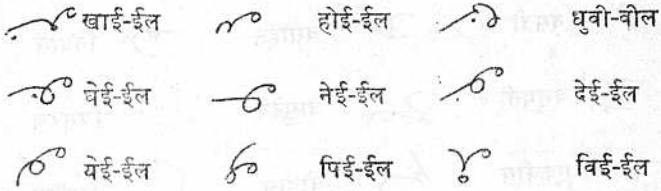 खाई-ईल होई-ईल धुवी-वील
घेई-ईल नेई-ईल देई-ईल
येई-ईल पिई-ईल विई-ईल